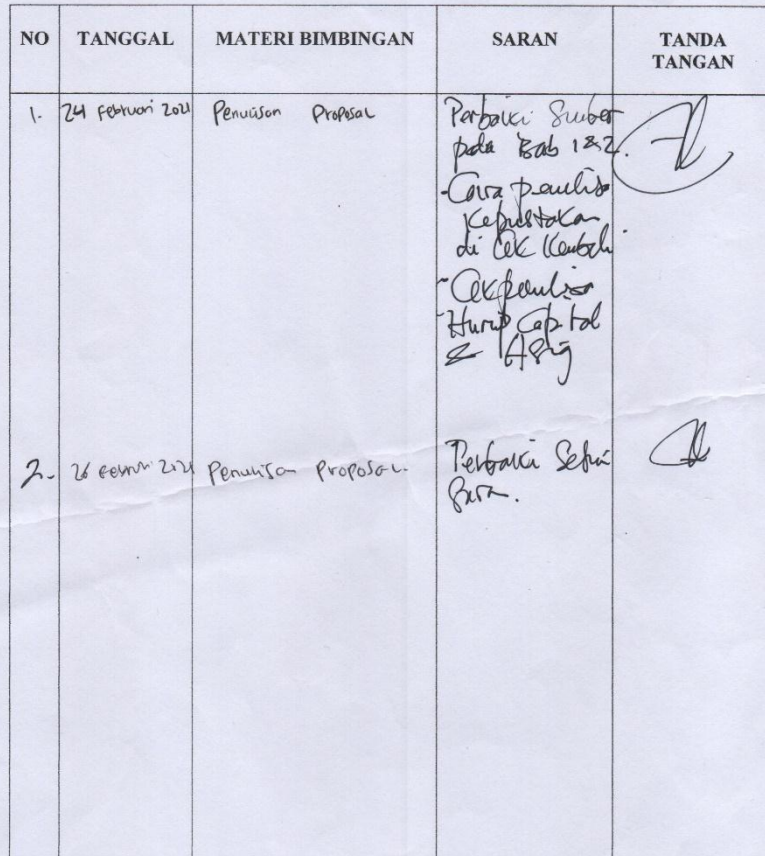 NO TANGGAL MATERI BIMBINGAN SARAN TANDA TANGAN
1. 24 Februari 2021 Penulisan Proposal Perbaiki Sumber
pada Bab 1 & 2.
- Cara penulisa
Kepustakan
di Cek Kembali
- Cek penulisan
- Huruf Capital
& Asing
2. 26 Februari 2021 Penulisan Proposal. Perbaiki Sesuai